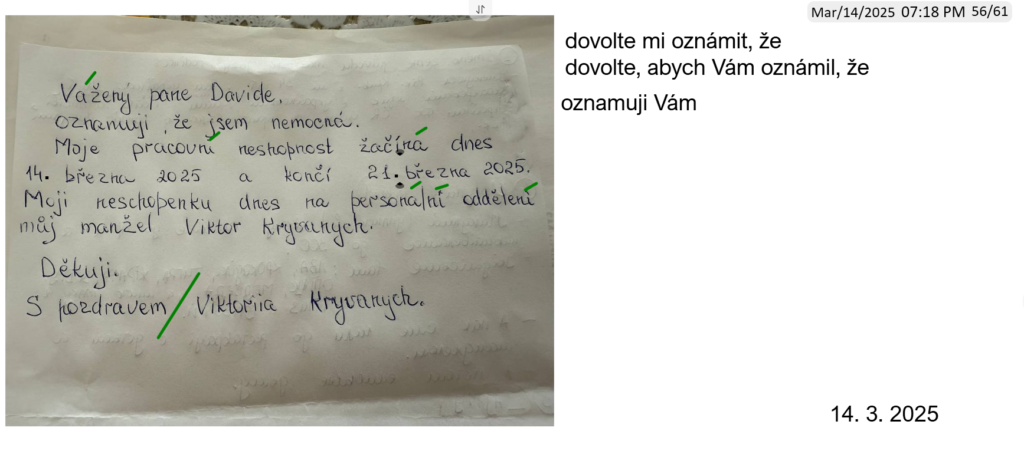 Mar/14/2025 07:18 PM 56/61
dovolte mi oznámit, že
dovolte, abych Vám oznámil, že
oznamuji Vám
Vážený pane Davide.
oznamuji, že jsem nemocná.
Moje pracovní neshopnost začíná dnes
14. března 2025 a končí 21. března 2025.
Moji neschopenku dnes na personální oddělení
můj manžel Viktor Kryvanych.
Děkuji.
S pozdravem Viktoriia Kryvanych.
14. 3. 2025